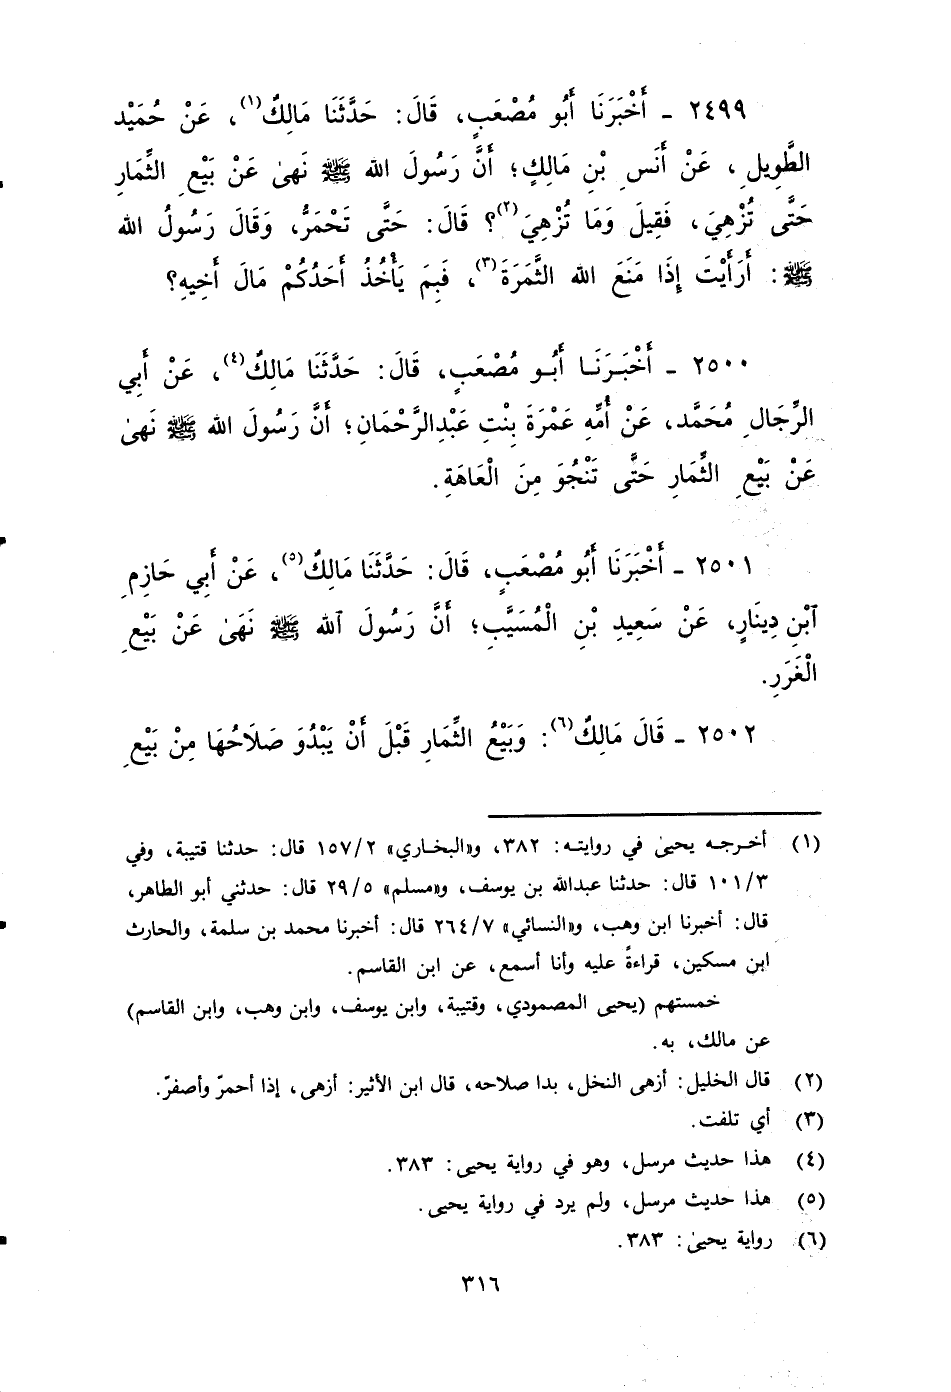 ٢٤٩٩ ـ أَخْبَرَنَا أَبُو مُصْعَبٍ، قَالَ: حَدَّثَنَا مَالِكٌ(١)، عَنْ حُمَيْد
الطَّوِيلِ، عَنْ أَنَسِ بْنِ مَالِكٍ؛ أَنَّ رَسُولَ الله ﷺ نَهىٰ عَنْ بَيْعِ الثِّمَارِ
حَتَّى تُزْهِيَ، فَقِيلَ وَمَا تُزْهِيَ(٢)؟ قَالَ: حَتَّى تَحْمَرُّ، وَقَالَ رَسُولُ الله
ﷺ: أَرَأَيْتَ إِذَا مَنَعَ الله الثَّمَرَةَ(٣)، فَبِمَ يَأْخُذُ أَحَدُكُمْ مَالَ أَخِيهِ؟
٢٥٠٠ ـ أَخْبَرَنَا أَبُو مُصْعَبٍ، قَالَ: حَدَّثَنَا مَالِكٌ(٤)، عَنْ أَبِي
الرِّجَالِ مُحَمَّد، عَنْ أُمِّهِ عَمْرَةَ بِنْتِ عَبْدِالرَّحْمَانِ؛ أَنَّ رَسُولَ الله ﷺ نَهىٰ
عَنْ بَيْعِ الثِّمَارِ حَتَّى تَنْجُوَ مِنَ الْعَاهَةِ.
٢٥٠١ ـ أَخْبَرَنَا أَبُو مُصْعَبٍ، قَالَ: حَدَّثَنَا مَالِكٌ(٥)، عَنْ أَبِي حَازِمِ
ابْنِ دِينَارٍ، عَنْ سَعِيدِ بْنِ الْمُسَيَّبِ؛ أَنَّ رَسُولَ ٱلله ﷺ نَهَىٰ عَنْ بَيْعِ
الْغَرَرِ.
٢٥٠٢ ـ قَالَ مَالِكٌ(٦): وَبَيْعُ الثِّمَارِ قَبْلَ أَنْ يَبْدُوَ صَلَاحُهَا مِنْ بَيْعِ
(١) أخرجه يحيىٰ في روايته: ٣٨٢، و«البخاري» ١٥٧/٢ قال: حدثنا قتيبة، وفي
١٠١/٣ قال: حدثنا عبدالله بن يوسف، و«مسلم» ٢٩/٥ قال: حدثني أبو الطاهر،
قال: أخبرنا ابن وهب، و«النسائي» ٢٦٤/٧ قال: أخبرنا محمد بن سلمة، والحارث
ابن مسكين، قراءةً عليه وأنا أسمع، عن ابن القاسم.
خمستهم (يحيى المصمودي، وقتيبة، وابن يوسف، وابن وهب، وابن القاسم)
عن مالك، به.
(٢) قال الخليل: أزهى النخل، بدا صلاحه، قال ابن الأثير: أزهى، إذا أحمرّ وأصفرّ.
(٣) أي تلفت.
(٤) هذا حديث مرسل، وهو في رواية يحيى: ٣٨٣.
(٥) هذا حديث مرسل، ولم يرد في رواية يحيى.
(٦) رواية يحيىٰ: ٣٨٣.
٣١٦